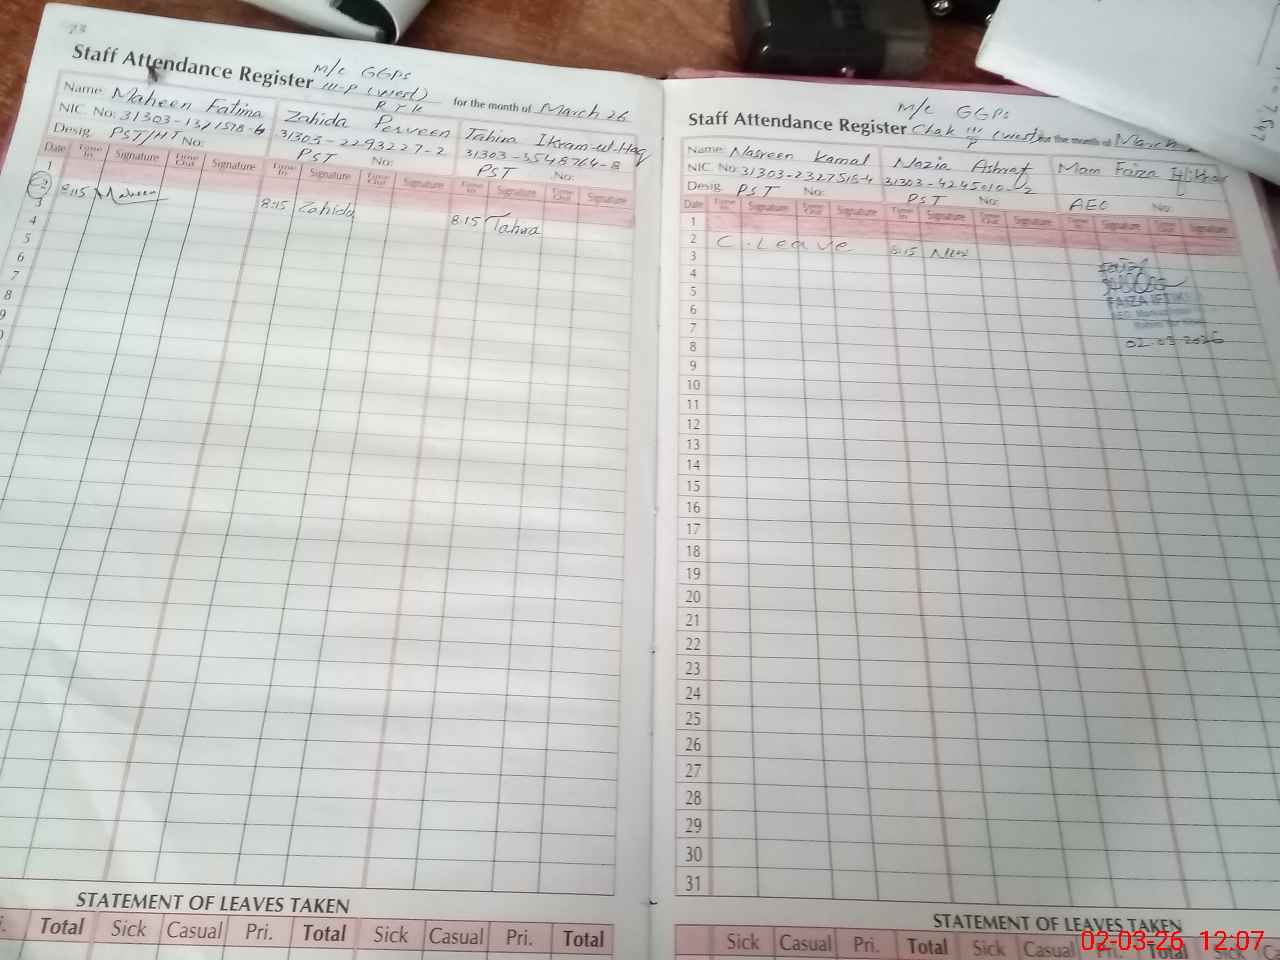 73
Staff Attendance Register M/C GGPS
111-P (west)
R Y K for the month of March 26
Name: Maheen Fatima Zahida Perveen Tahira Ikram-ul-Haq
NIC. No: 31303-1371578-6 31303-2293227-2 31303-3548764-8
Desig. PST/HT No: PST No: PST No:
Date Time In Signature Time Out Signature Time In Signature Time Out Signature Time In Signature Time Out Signature
1
2 8:15 Maheen 8:15 Zahida 8:15 Tahira
3
4
5
6
7
8
9
STATEMENT OF LEAVES TAKEN
Total Sick Casual Pri. Total Sick Casual Pri. Total
M/C GGPS
Staff Attendance Register Chak 111/P (west) for the month of March
Name: Nasreen Kamal Nazia Ashraf Mam Faiza Iftikhar
NIC. No: 31303-2327515-4 31303-4245010-2
Desig. PST No: PST No: AEO No:
Date Time In Signature Time Out Signature Time In Signature Time Out Signature Time In Signature Time Out Signature
1
2 C. Leave 8:15
3
4
5
6 FAIZA IFTIKH
7 AEO Markaz
8 02-03-2026
9
10
11
12
13
14
15
16
17
18
19
20
21
22
23
24
25
26
27
28
29
30
31
STATEMENT OF LEAVES TAKEN
Sick Casual Pri. Total Sick Casual Pri. Total Sick
02-03-26 12:07